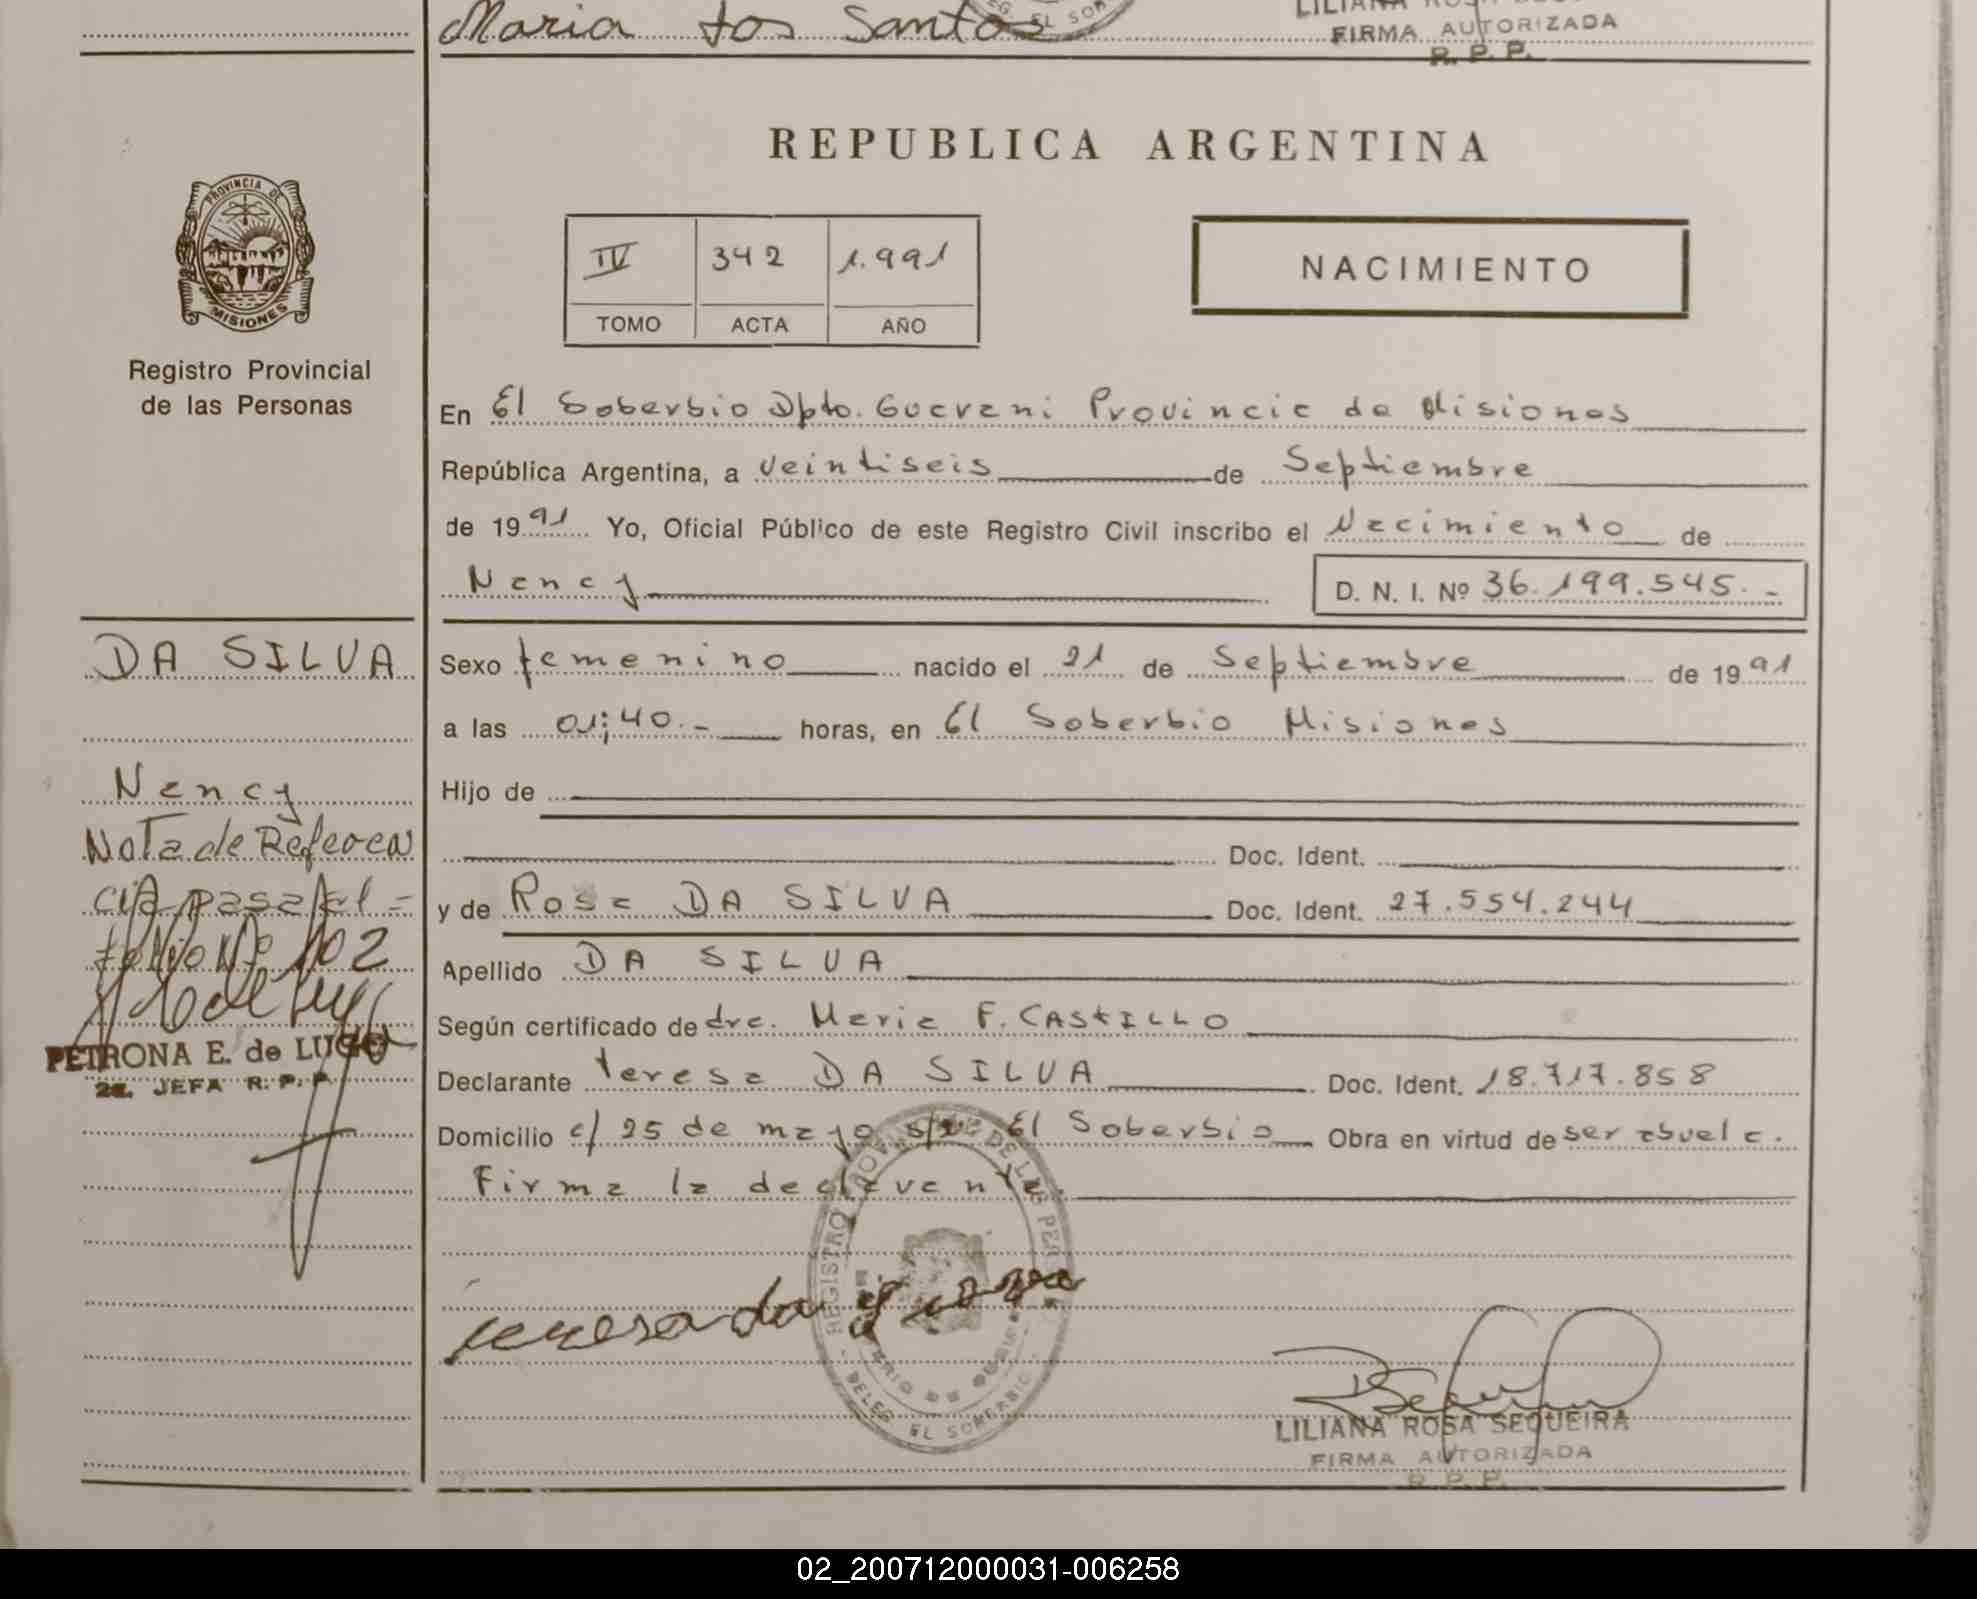 Maria dos Santos
FIRMA AUTORIZADA
R. P. P.
REPUBLICA ARGENTINA
PROVINCIA DE
MISIONES
Registro Provincial
de las Personas
IV 342 1.991
TOMO ACTA AÑO
NACIMIENTO
En El Soberbio Dpto. Guarani Provincia de Misiones
República Argentina, a veintiseis de Septiembre
de 1991 Yo, Oficial Público de este Registro Civil inscribo el Nacimiento de
Nancy D. N. I. Nº 36.199.545.-
DA SILVA
Nancy
Nota de Referen
cia pasa al =
folio Nº 102
PETRONA E. de LUGO
2a. JEFA R. P. P.
Sexo femenino nacido el 21 de Septiembre de 1991
a las 01;40.- horas, en El Soberbio Misiones
Hijo de
Doc. Ident.
y de Rosa DA SILVA Doc. Ident. 27.554.244
Apellido DA SILVA
Según certificado de dra. Maria F. CASTILLO
Declarante teresa DA SILVA Doc. Ident. 18.717.858
Domicilio c/ 25 de mayo s/n El Soberbio Obra en virtud de ser abuela.
Firma la declarante.
REGISTRO PROVINCIAL DE LAS PERS
DELEG. EL SOBERBIO
teresa da
LILIANA ROSA SEQUEIRA
FIRMA AUTORIZADA
R. P. P.
02_200712000031-006258